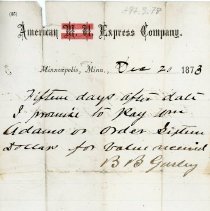 (85)
American M. U. Express Company.
Minneapolis, Minn., Dec 20 1873
Fifteen days after date
I promise to pay
Adams or order Sixteen
Dollars for value received
B B